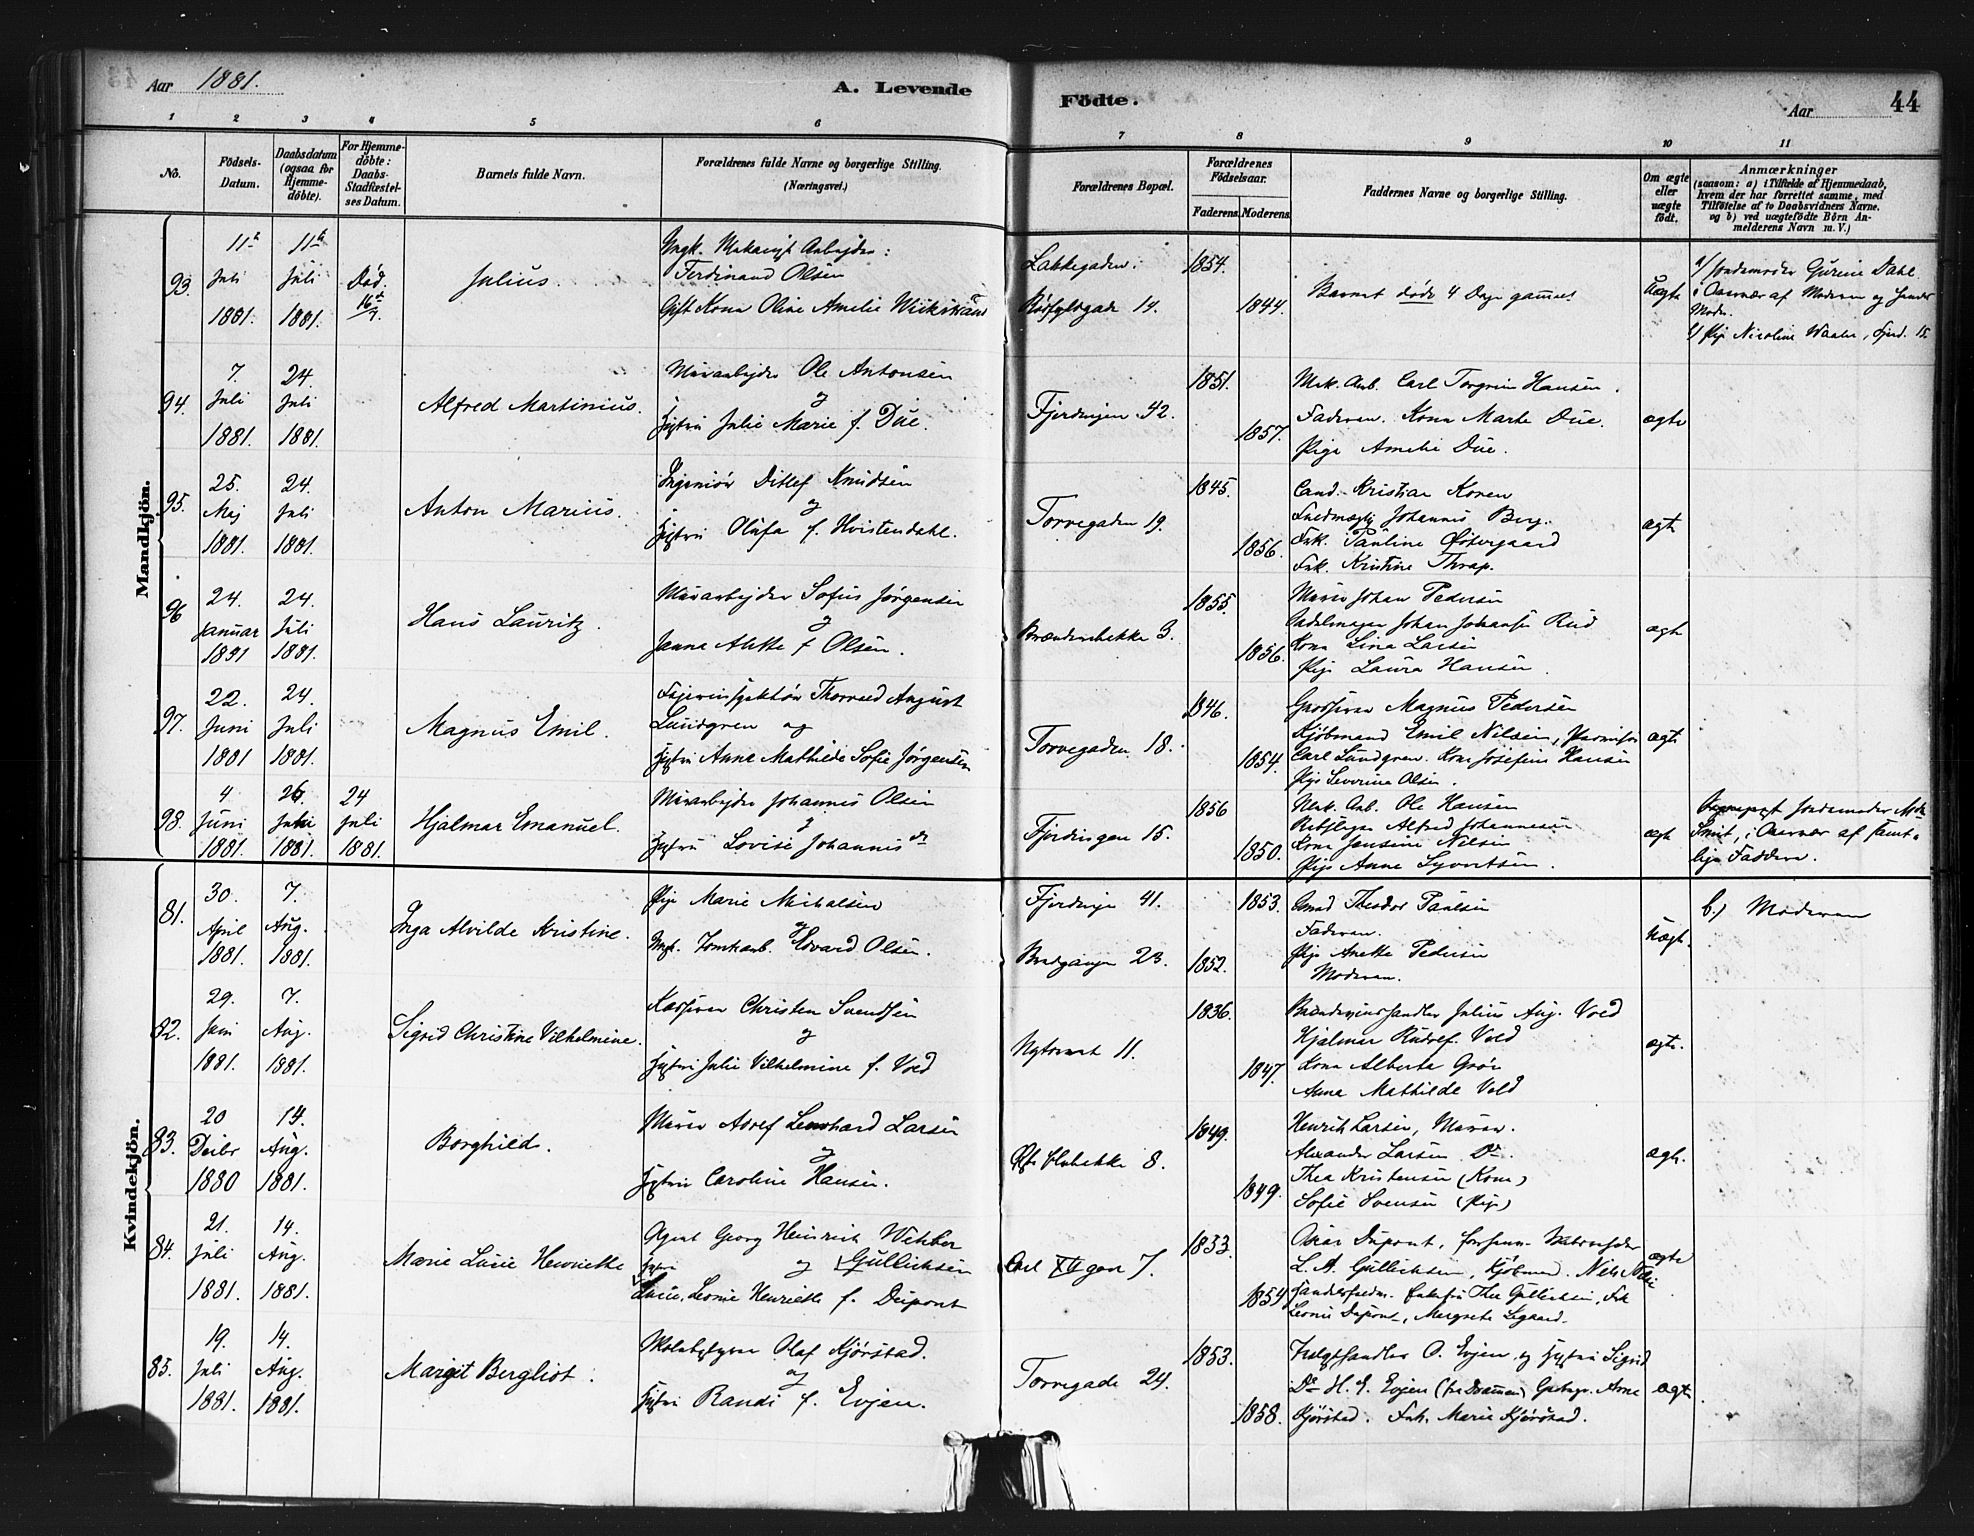 Aar 1881.
A. Levende
Födte.
Aar
44
1 2 3 4 5 6 7 8 9 10 11
No.
Födsels-Datum.
Daabsdatum (ogsaa for Hjemmedöbte).
For Hjemmedöbte: Daabs-Stadfæstelses Datum.
Barnets fulde Navn.
Forældrenes fulde Navne og borgerlige Stilling. (Næringsvei.)
Forældrenes Bopæl.
Forældrenes Födselsaar.
Faderens. Moderens.
Faddernes Navne og borgerlige Stilling.
Om ægte eller uægte födt.
Anmærkninger
(saasom: a) i Tilfælde af Hjemmedaab,
hvem der har forrettet samme, med
Tilföielse af to Daabsvidners Navne.
og b) ved uægtefödte Börn An-
melderens Navn m. V.)
Mandkjön.
93. 11te Juli 1881. 11te Juli 1881. Död. 16/7.
Julius.
Ungk. Arbejder:
Ferdinand Olsen
Gift Kona Oline Amelie
Lakkegaden.
14.
1854. 1844.
Barnet døde 4 Dage gammel
Uægte
a/ Jordemoder Gurine Dahl
i Overvær af Moderen og
b/ Pige Nicoline Waaler, Fjerd. 15
94. 7. Juli 1881. 24. Juli 1881.
Alfred Martinius.
Murarbejder Ole Antonsen
og
Hustru Julie Marie f. Due.
Fjerdingen 42.
1851. 1857.
Mek. Arb. Carl Torgrim Hansen.
Faderen. Kona Marte Due.
Pige Amelie Due.
ægte
95. 25. Maj 1881. 24. Juli 1881.
Anton Marius.
Ingeniør Ditlef Knudsen
og
Hustru Olufa f. Hvistendahl.
Torvegaden 19.
1845. 1856.
Cand. Kristian Koren
Johannes Berg.
Frk. Pauline Østergaard
Frk. Kristine Thrap.
ægte
96 24. Januar 1881 24. Juli 1881.
Hans Lauritz.
Murarbejder Sofus Jørgensen
og
Janna Alette f Olsen.
3.
1855. 1856.
Murer Johan Pedersen
Sadelmager Johan Johansen Rud
Kona Lina Larsen
Pige Laura Hansen.
ægte
97. 22. Juni 1881 24. Juli 1881.
Magnus Emil.
Thorvald August
Lundgren og
Hustru Anna Mathilde Sofie Jørgensen
Torvegaden 18.
1846. 1854.
Grosserer Magnus Pedersen
Kjøbmand Emil Nilsen,
Carl Lundgren. Kona Josefine Hansen
Pige Severine Olsen.
ægte
98. 4 Juni 1881. 26. Juni 1881. 24 Juli 1881.
Hjalmar Emanuel.
Murarbejder Johannes Olsen
og
Hustru Lovise Johannesdr
Fjerdingen 15.
1856 1850.
Mek. Arb. Ole Hansen
Rebslager Alfred Johannesen
Kona Jensine Nilsen
Pige Anne Syvertsen.
ægte
Jordemoder
Smit, i Overvær af samt-
lige Faddere.
Kvindekjön.
81. 30. April 1881. 7. Aug. 1881.
Inga Alvilde Kristine.
Pige Marie Michalsen
og
Ungk. Tomtearb. Edvard Olsen.
Fjerdingen 41.
Bredgangen 23.
1853. 1852.
Theodor Paulsen
Faderen.
Pige Anette Pedersen
Moderen.
Uægte
b.) Moderen
82. 29. Juni 1881. 7. Aug. 1881.
Sigrid Christine Vilhelmine.
Kasserer Christen Svendsen
og
Hustru Julie Vilhelmine f. Vold
Nytorvet 11.
1836. 1847.
Brændevinshandler Julius Aug. Vold
Hjalmar Rudolf Vold
Kona Alberta Grøn
Anna Mathilde Vold
ægte.
83. 20 Decbr 1880 14. Aug. 1881.
Borghild.
Murer Adolf Leonhard Larsen
og
Hustru Caroline Hansen.
8.
1849. 1849.
Henrik Larsen, Murer.
Alexander Larsen Do.
Thea Kristensen (Kone)
Sofie Svensen (Pige)
ægte.
84. 21. Juli 1881. 14. Aug. 1881.
Marie Lucie Henriette
Agent Georg Heinrich Gullichsen
Hustru og
Lucie, Leonie Henriette f. Dupont
Carl XII gade 7.
1833. 1854
Oscar Dupont,
L. A. Gullichsen, Kjøbmand. Niels
Thea Gullichsen, Frk
Leonie Dupont, Margrete
ægte
85. 19. Juli 1881. 14. Aug. 1881.
Margit Bergliot.
Skolebestyrer Olaf Kjørstad.
og
Hustru Randi f. Evjen.
Torvegade 24.
1853. 1858.
O. Evjen og Hustru Sigrid
Do H. E. Evjen (fra Drammen) Arne
Kjørstad. Frk. Marie Kjørstad.
ægte